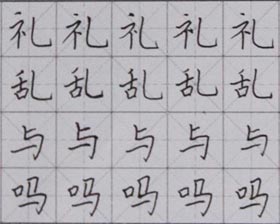 礼礼礼礼礼
乱乱乱乱乱
与与与与与
吗吗吗吗吗